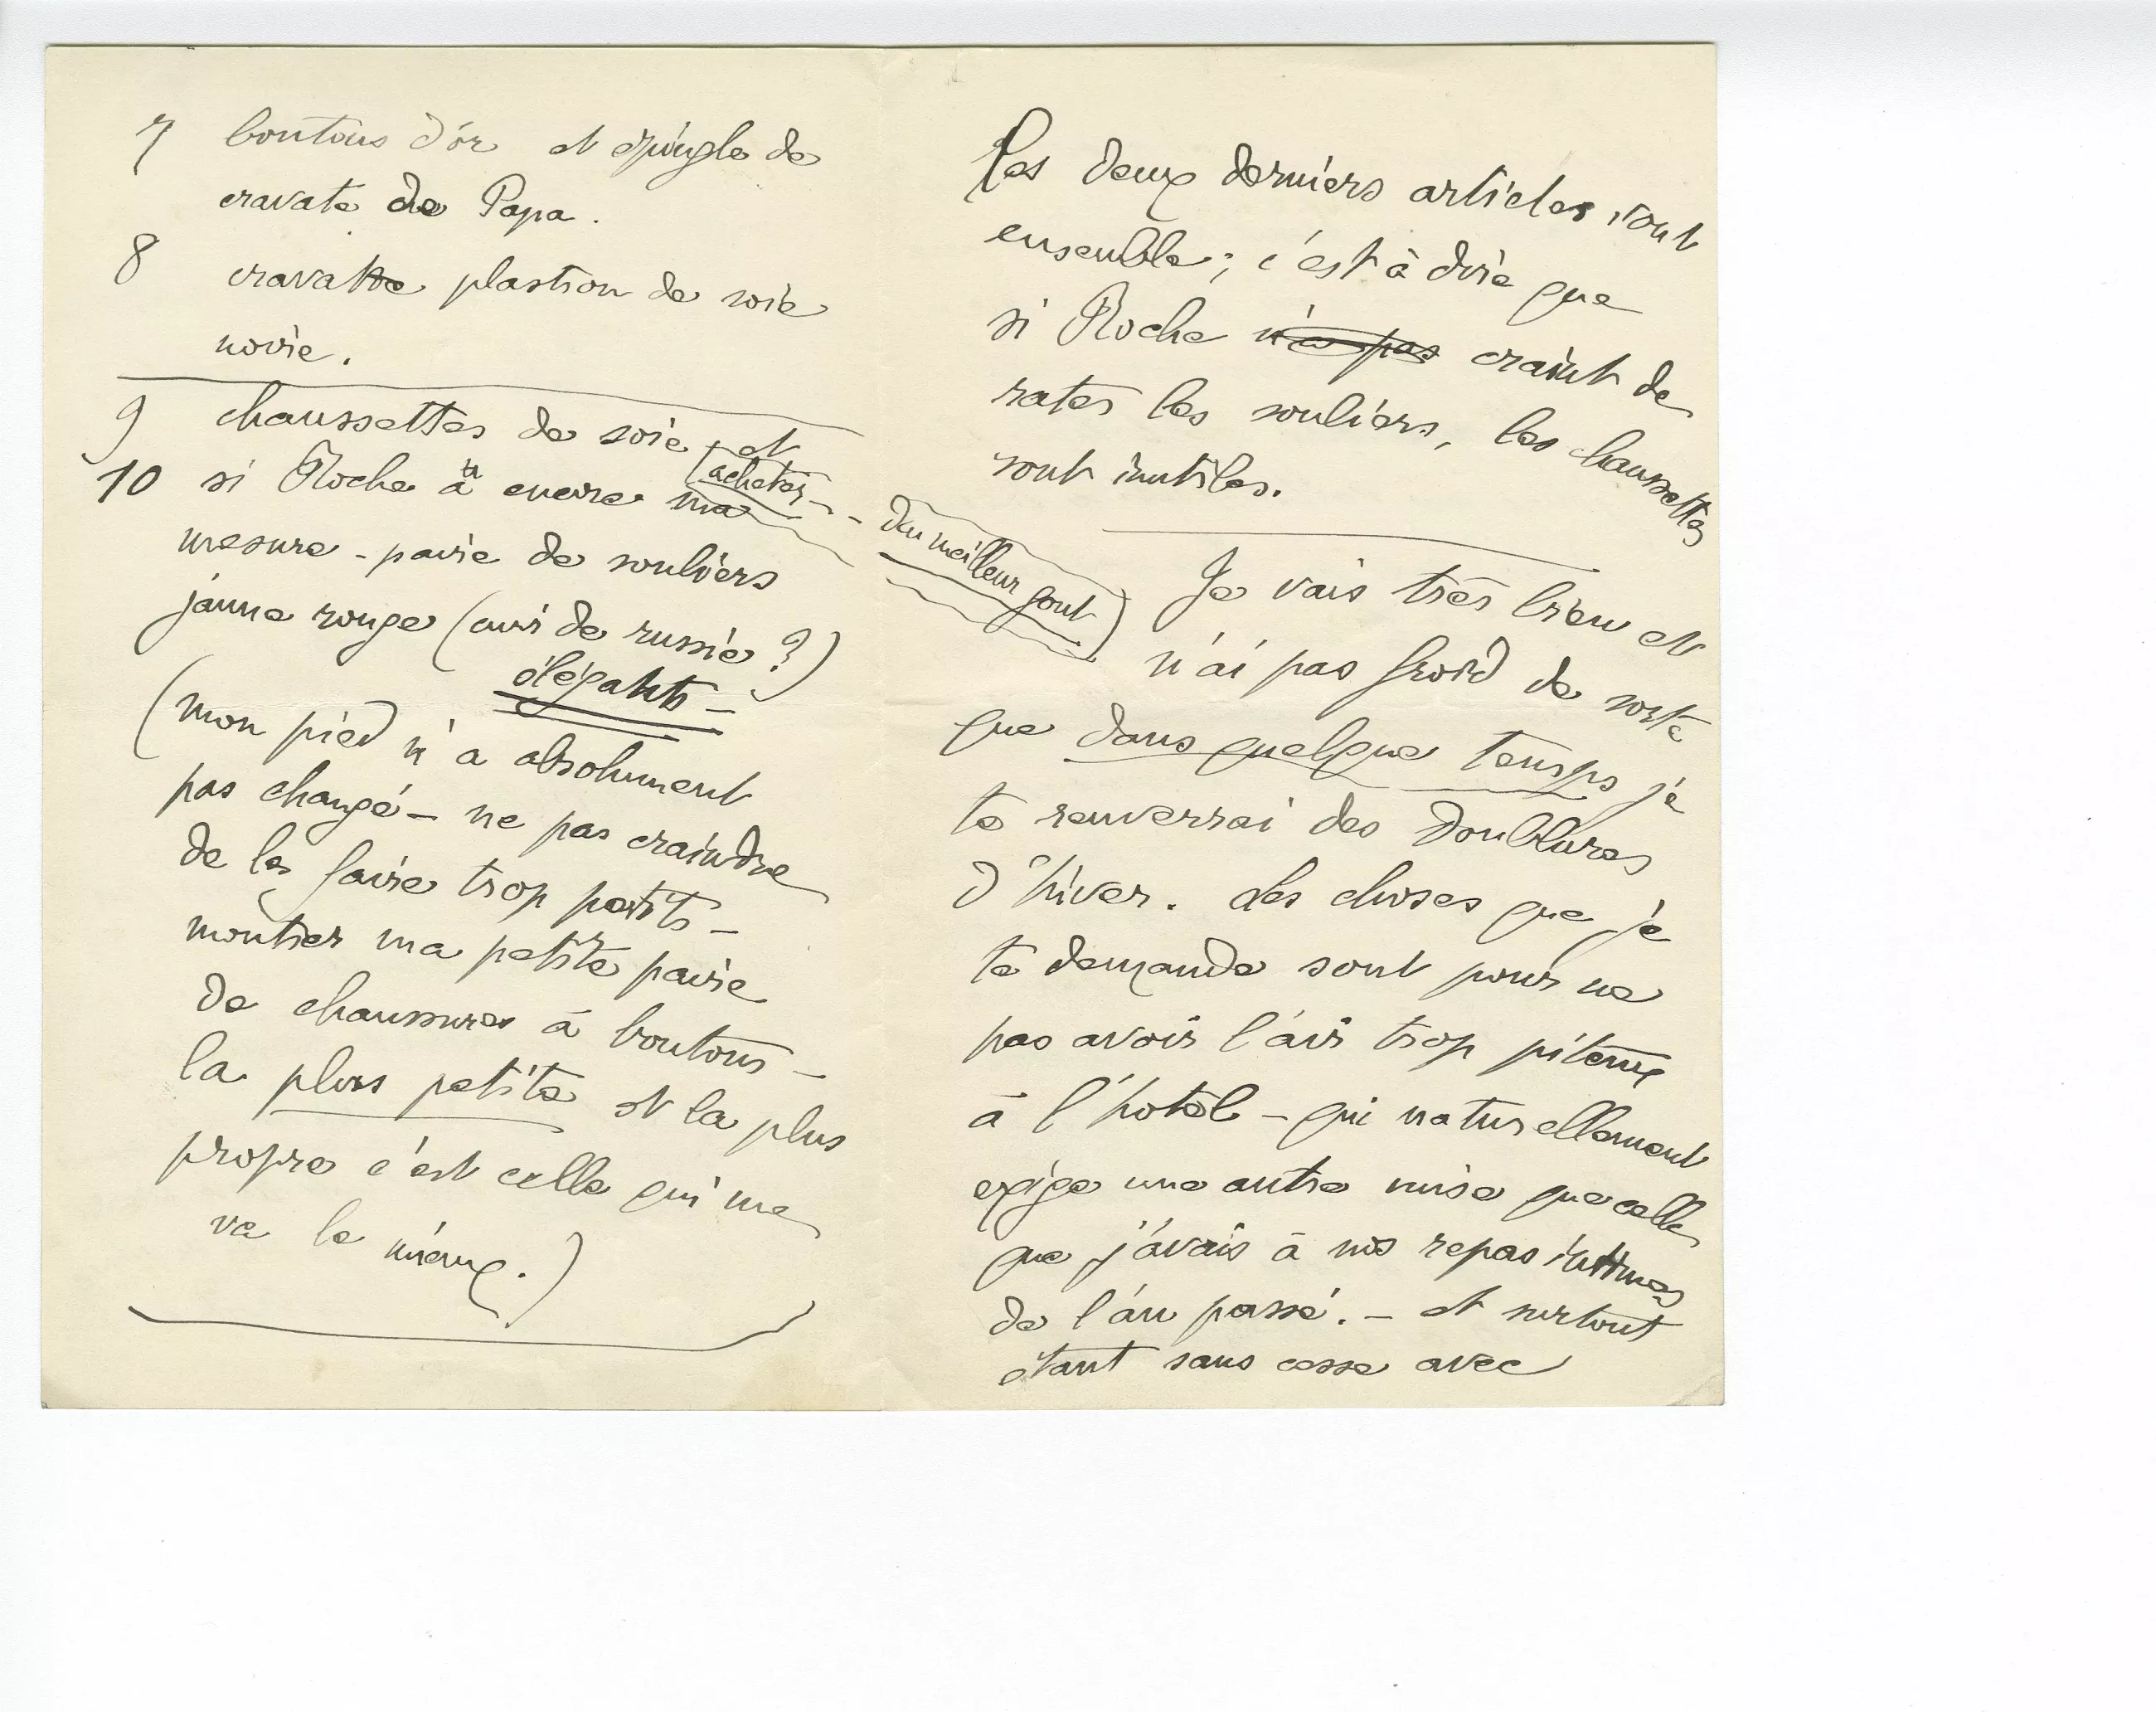 7 boutons d'or et épingle de
cravate de Papa.
8 cravatte plastron de soie
noire.
9 chaussettes de soie, et
acheter -
10 si Roche a encore ma
mesure - paire de souliers
jaune rouge (cuir de russie ?)
élégants -
(mon pied n'a absolument
pas changé - ne pas craindre
de les faire trop petits -
montrer ma petite paire
de chaussures à boutons -
la plus petite et la plus
propre c'est celle qui me
va le mieux.)
Ces deux derniers articles vont
ensemble ; c'est à dire que
si Roche n'a pas craint de
rater les souliers, les chaussettes
sont inutiles.
du meilleur gout)
Je vais très bien et
n'ai pas froid de sorte
que dans quelque temps je
te renverrai des doublures
d'hiver. Les choses que je
te demande sont pour ne
pas avoir l'air trop piteux
à l'hotel - qui naturellement
exige une autre mise que celle
que j'avais à nos repas intimes
de l'an passé. - et surtout
étant sans cesse avec